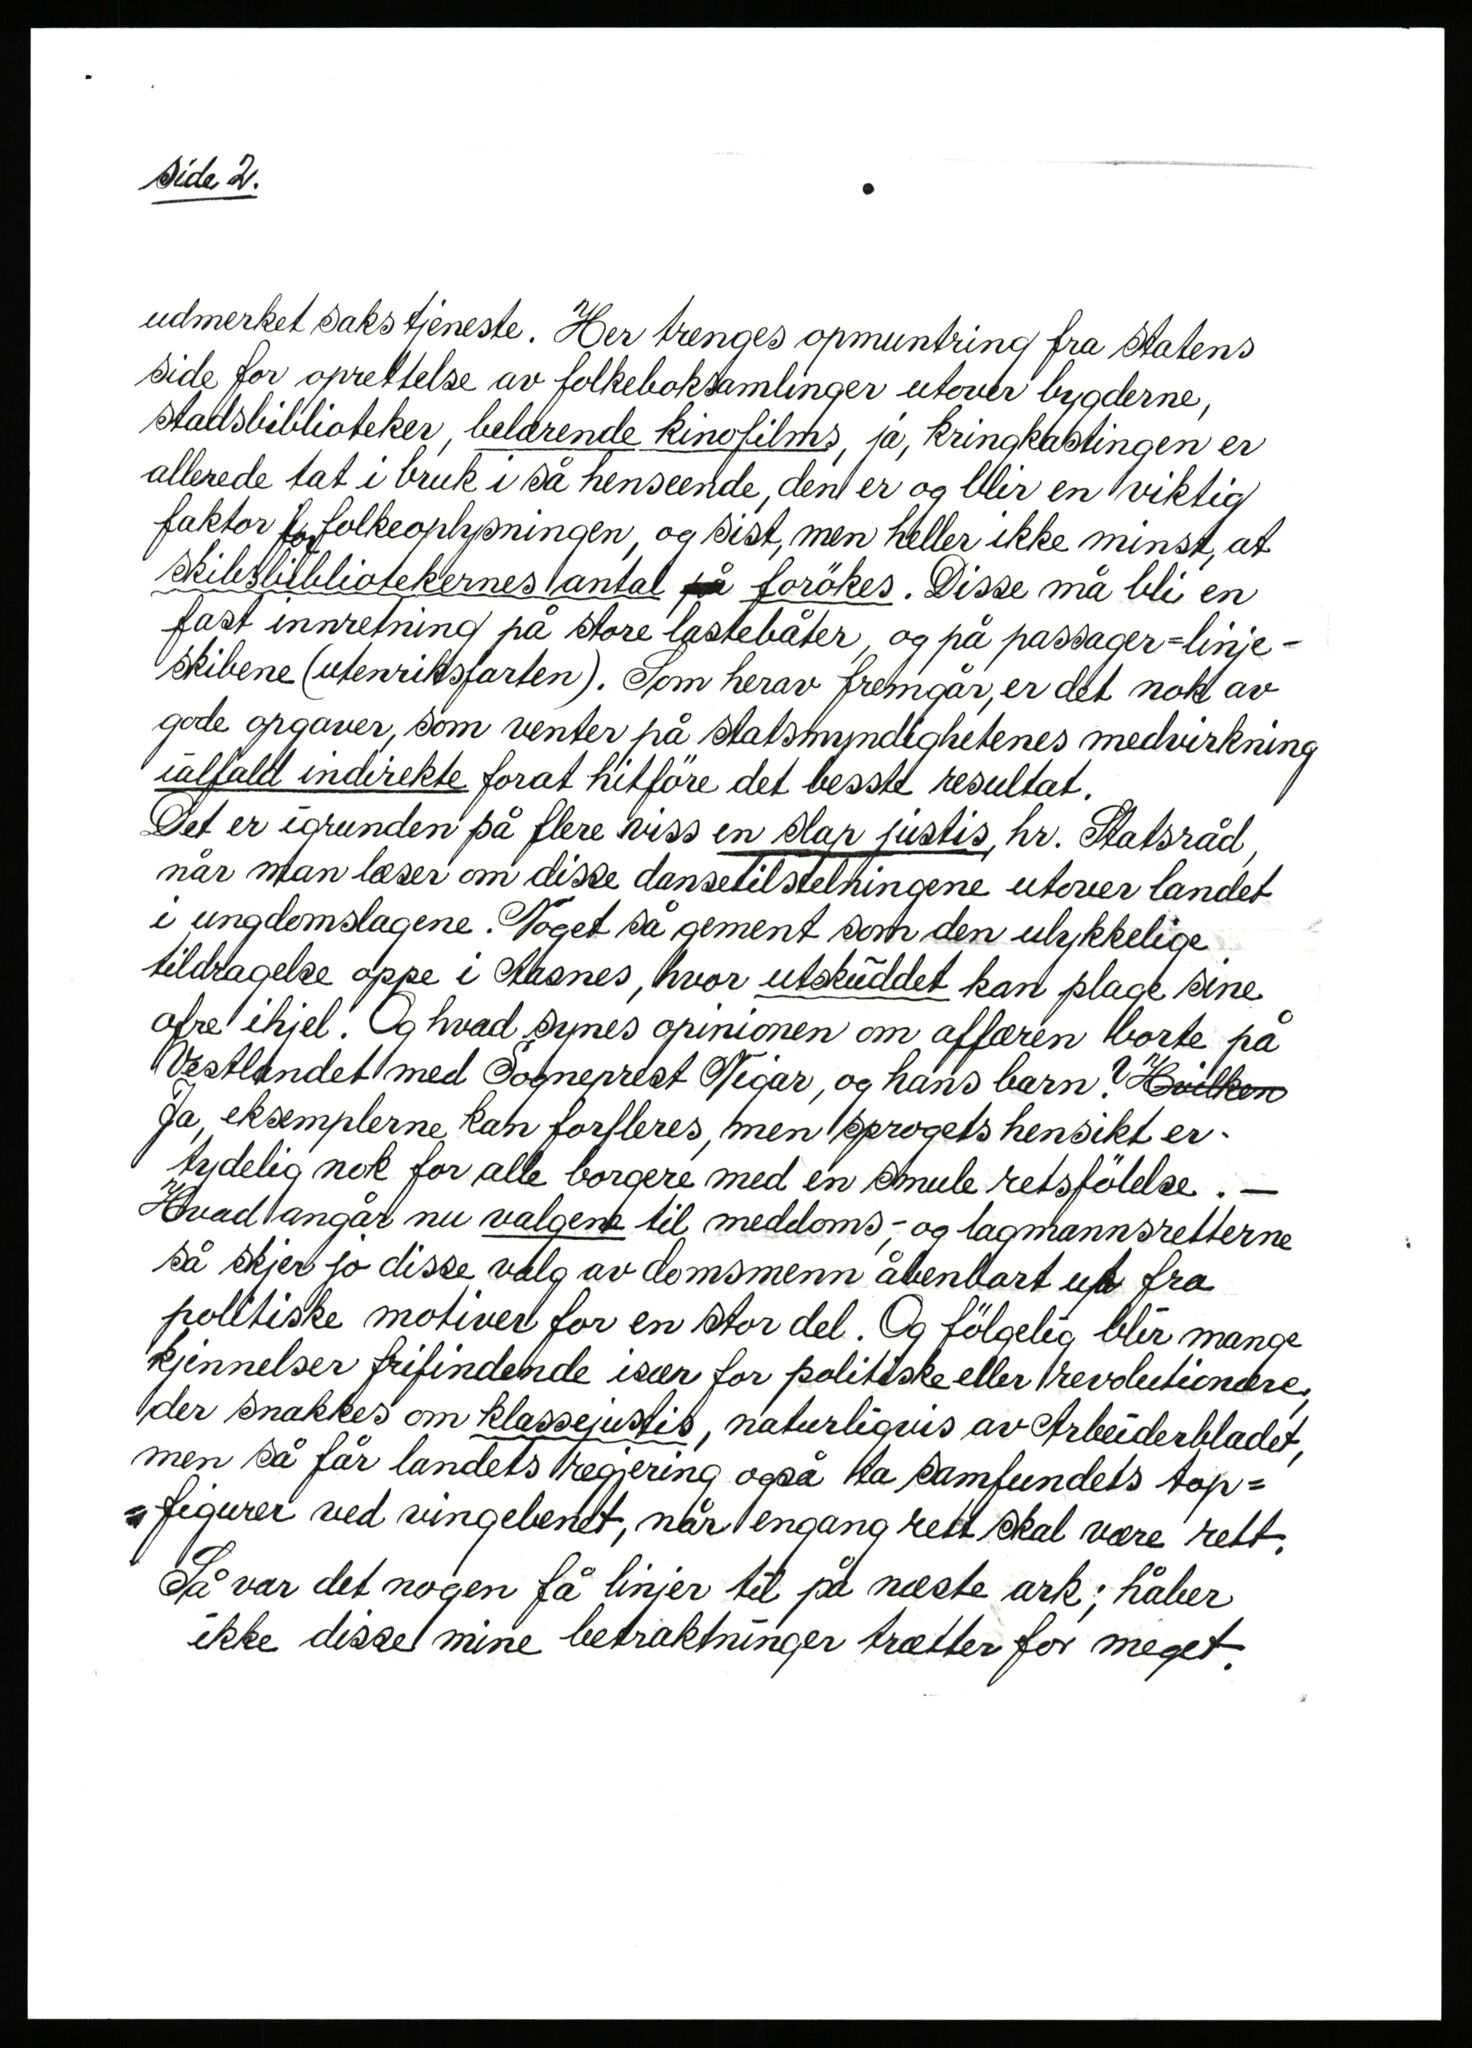 side 2.
udmerket sakstjeneste. Her trenges opmuntring fra statens
side for oprettelse av folkeboksamlinger utover bygderne,
stadsbiblioteker, belærende kinofilms, já, kringkastingen er
allerede tat i bruk i så henseende, den er og blir en viktig
faktor for folkeoplysningen, og sist, men heller ikke minst, at
skibsbibliotekernes antal på forökes. Disse må bli en
fast innretning på store lastebåter, og på passager=linje-
skibene (utenriksfarten). Som herav fremgår, er det nok av
gode opgaver, som venter på statsmyndighetenes medvirkning
ialfald indirekte forat hitföre det besste resultat.
Det er igrunden på flere viss en slap justis, hr. Statsråd,
når man læser om disse dansetilstelningene utover landet
i ungdomslagene. Noget så gement som den ulykkelige
tildragelse oppe i Aasnes, hvor utskuddet kan plage sine
ofre ihjel. Og hvad synes opinionen om affæren borte på
Vestlandet med Sogneprest Nigar, og hans barn? Hvilken
Ja, eksemplerne kan forfleres, men sprogets hensikt er
tydelig nok for alle borgere med en smule retsfölelse. —
Hvad angår nu valgene til meddoms,- og lagmannsretterne
så skjer jo disse valg av domsmenn åbenbart ut fra
politiske motiver for en stor del. Og fölgelig blir mange
kjennelser frifindende især for politiske eller revolutionære,
der snakkes om klassejustis, naturligvis av Arbeiderbladet,
men så får landets regjering også ta samfundets top=
=figurer ved vingebenet, når engang rett skal være rett.
Så var det nogen få linjer til på næste ark; håber
ikke disse mine betraktninger trætter for meget.